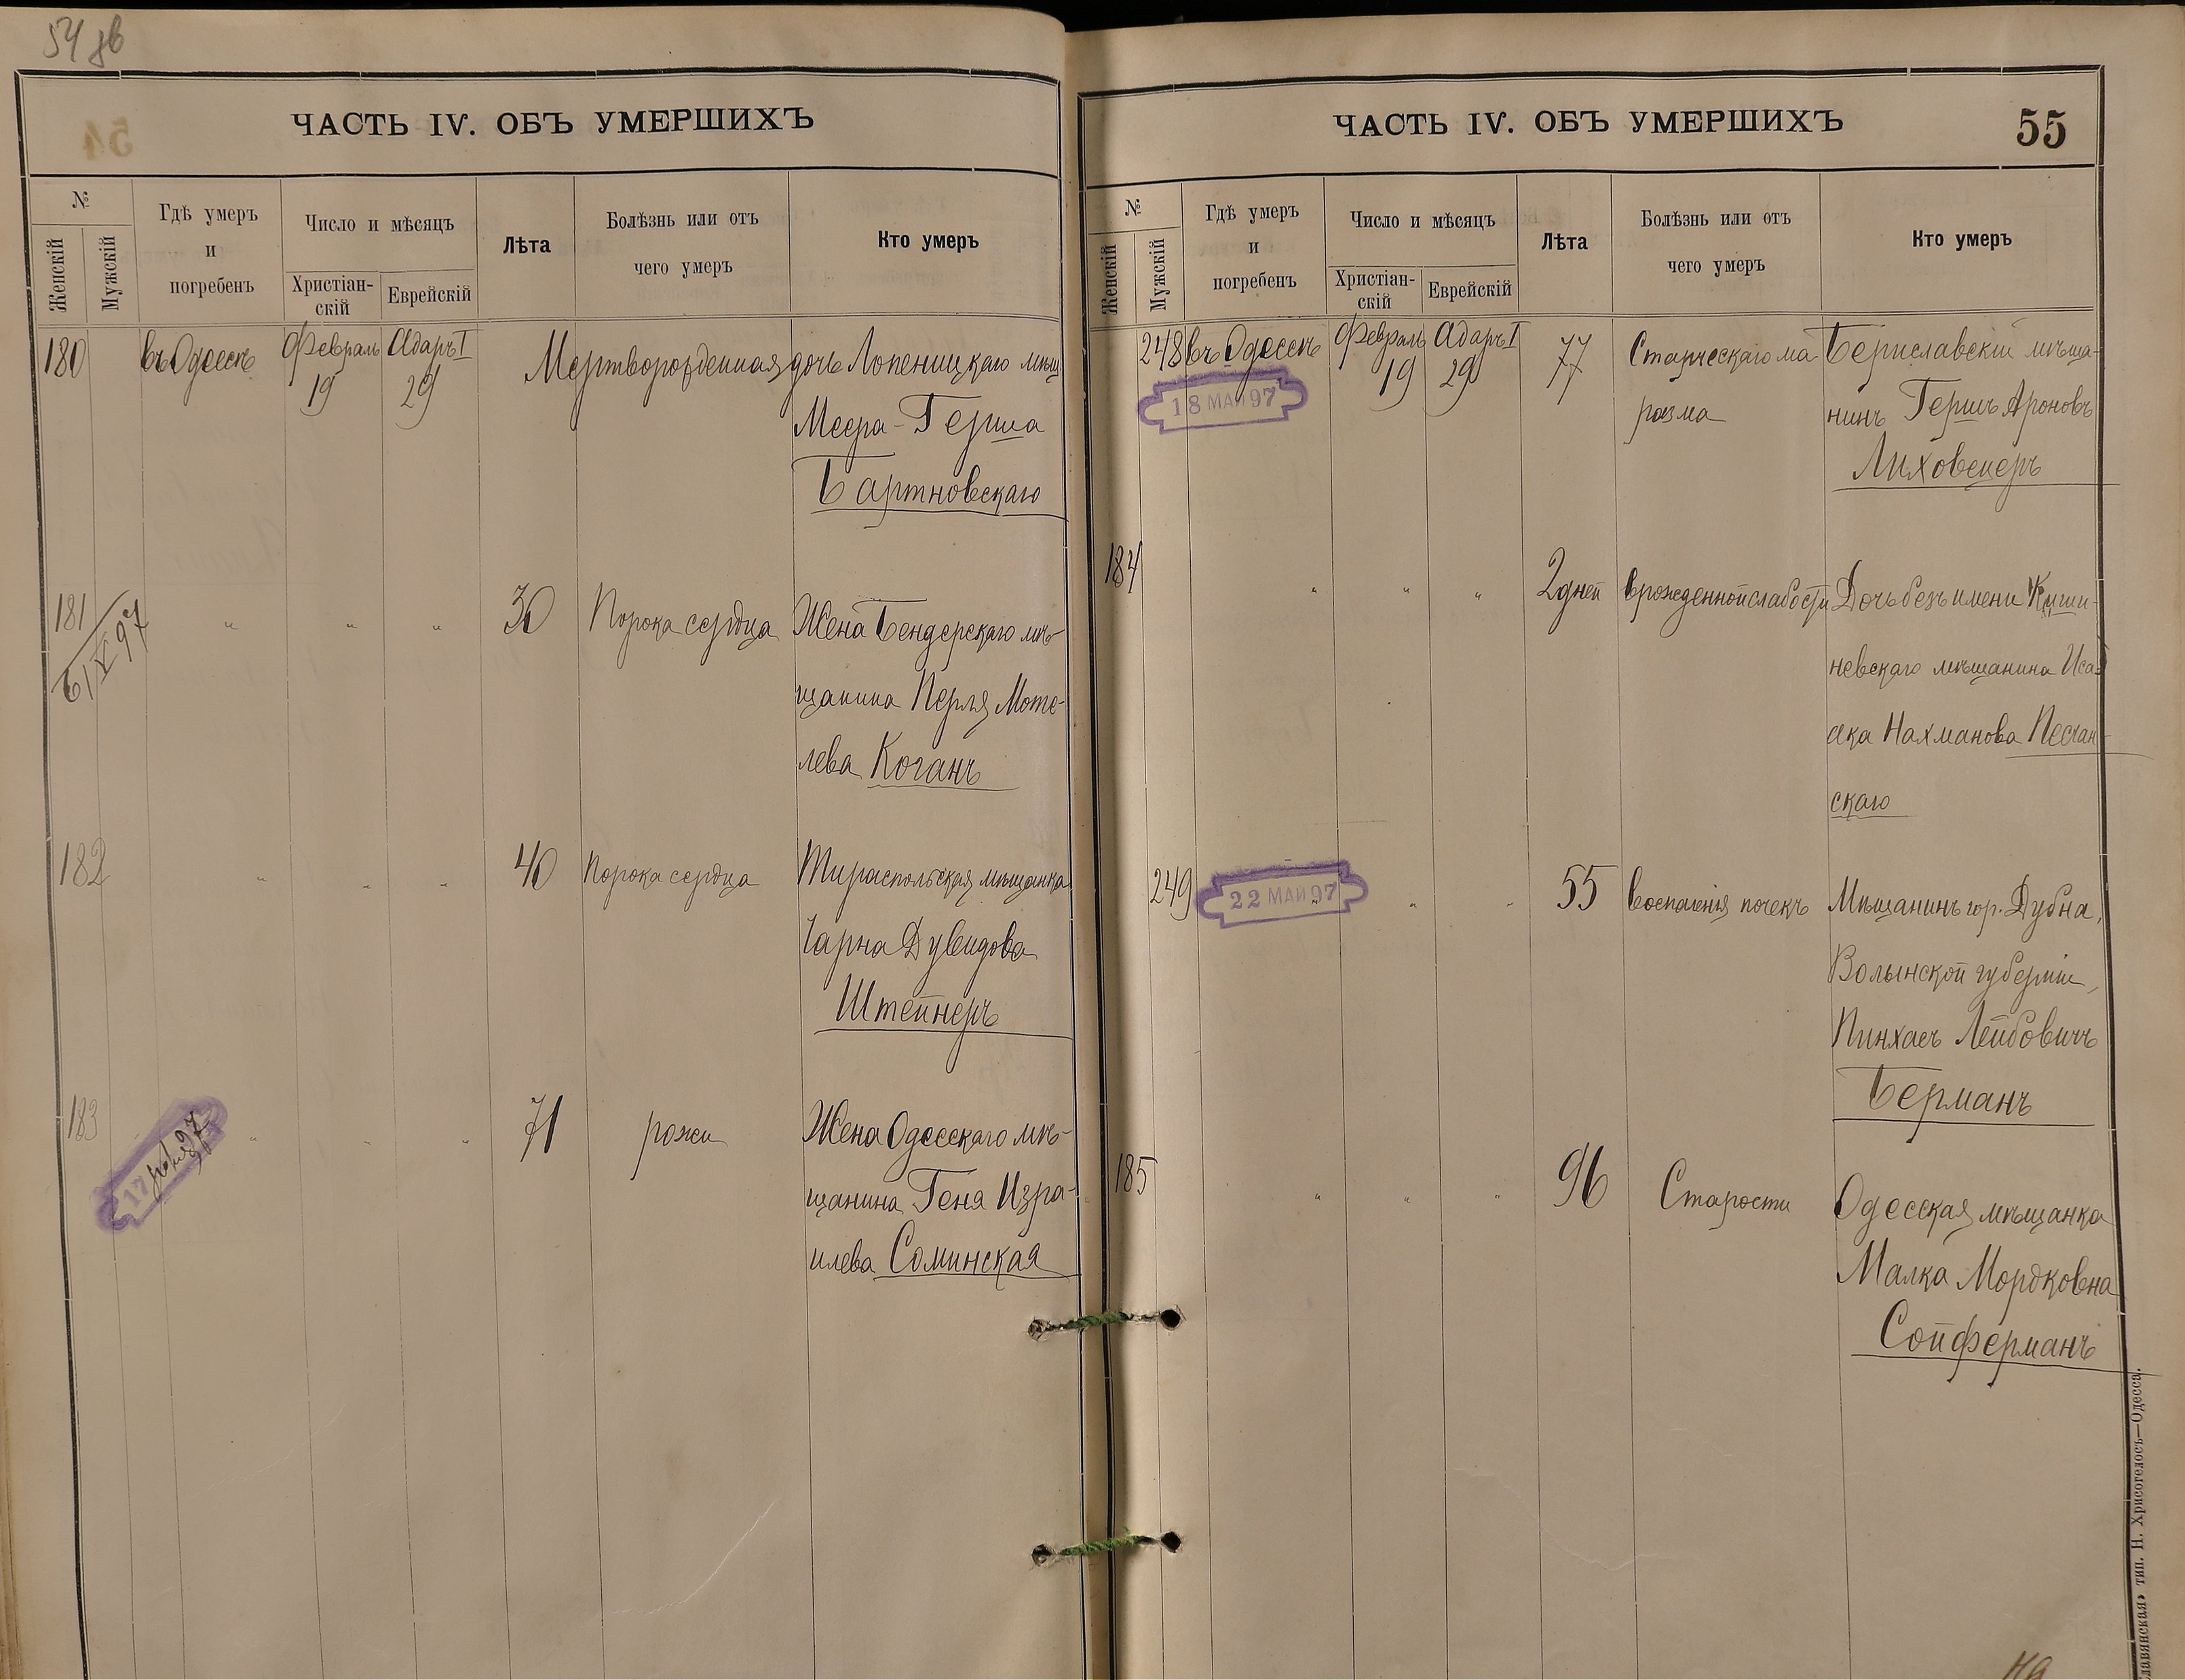 54 зв
ЧАСТЬ IV. ОБЪ УМЕРШИХЪ
№
Женскій
Мужскій
Гдѣ умеръ
и
погребенъ
Число и мѣсяцъ
Христіан-
скій
Еврейскій
Лѣта
Болѣзнь или отъ
чего умеръ
Кто умеръ
180 въ Одессѣ Февраль Адаръ I Мертворожденная дочь Лопеницкаго мѣщ.
19 29 Меера-Герша
Бартновскаго
181 " " " 30 Порока сердца Жена Бендерскаго мѣ-
6/V 97
щанина Перля Моте-
лева Коганъ
182 " " " 40 Порока сердца Тираспольская мѣщанка
Чарна Дувидова
Штейнеръ
183 " " " 71 рожи Жена Одесскаго мѣ-
17 97
щанина Геня Изра-
илева Соминская
ЧАСТЬ IV. ОБЪ УМЕРШИХЪ 55
№
Женскій
Мужскій
Гдѣ умеръ
и
погребенъ
Число и мѣсяцъ
Христіан-
скій
Еврейскій
Лѣта
Болѣзнь или отъ
чего умеръ
Кто умеръ
248 въ Одессѣ Февраль Адаръ I 77 Старческаго ма Бериславскій мѣща-
18 МАЙ 97 19 29 разма нинъ Гершъ Ароновъ
Лиховецеръ
184 " " " 2 дней врожденной слабости Дочь безъ имени Киши-
невскаго мѣщанина Иса-
ака Нахманова Песчан-
скаго
249 22 МАЙ 97 " " 55 воспаленія почекъ Мѣщанинъ гор. Дубна,
Волынской губерніи,
Пинхасъ Лейбовичъ
Берманъ
185 " " " 96 Старости Одесская мѣщанка
Малка Мордковна
Сойферманъ
тип. Н. Хрисогелосъ—Одесса.